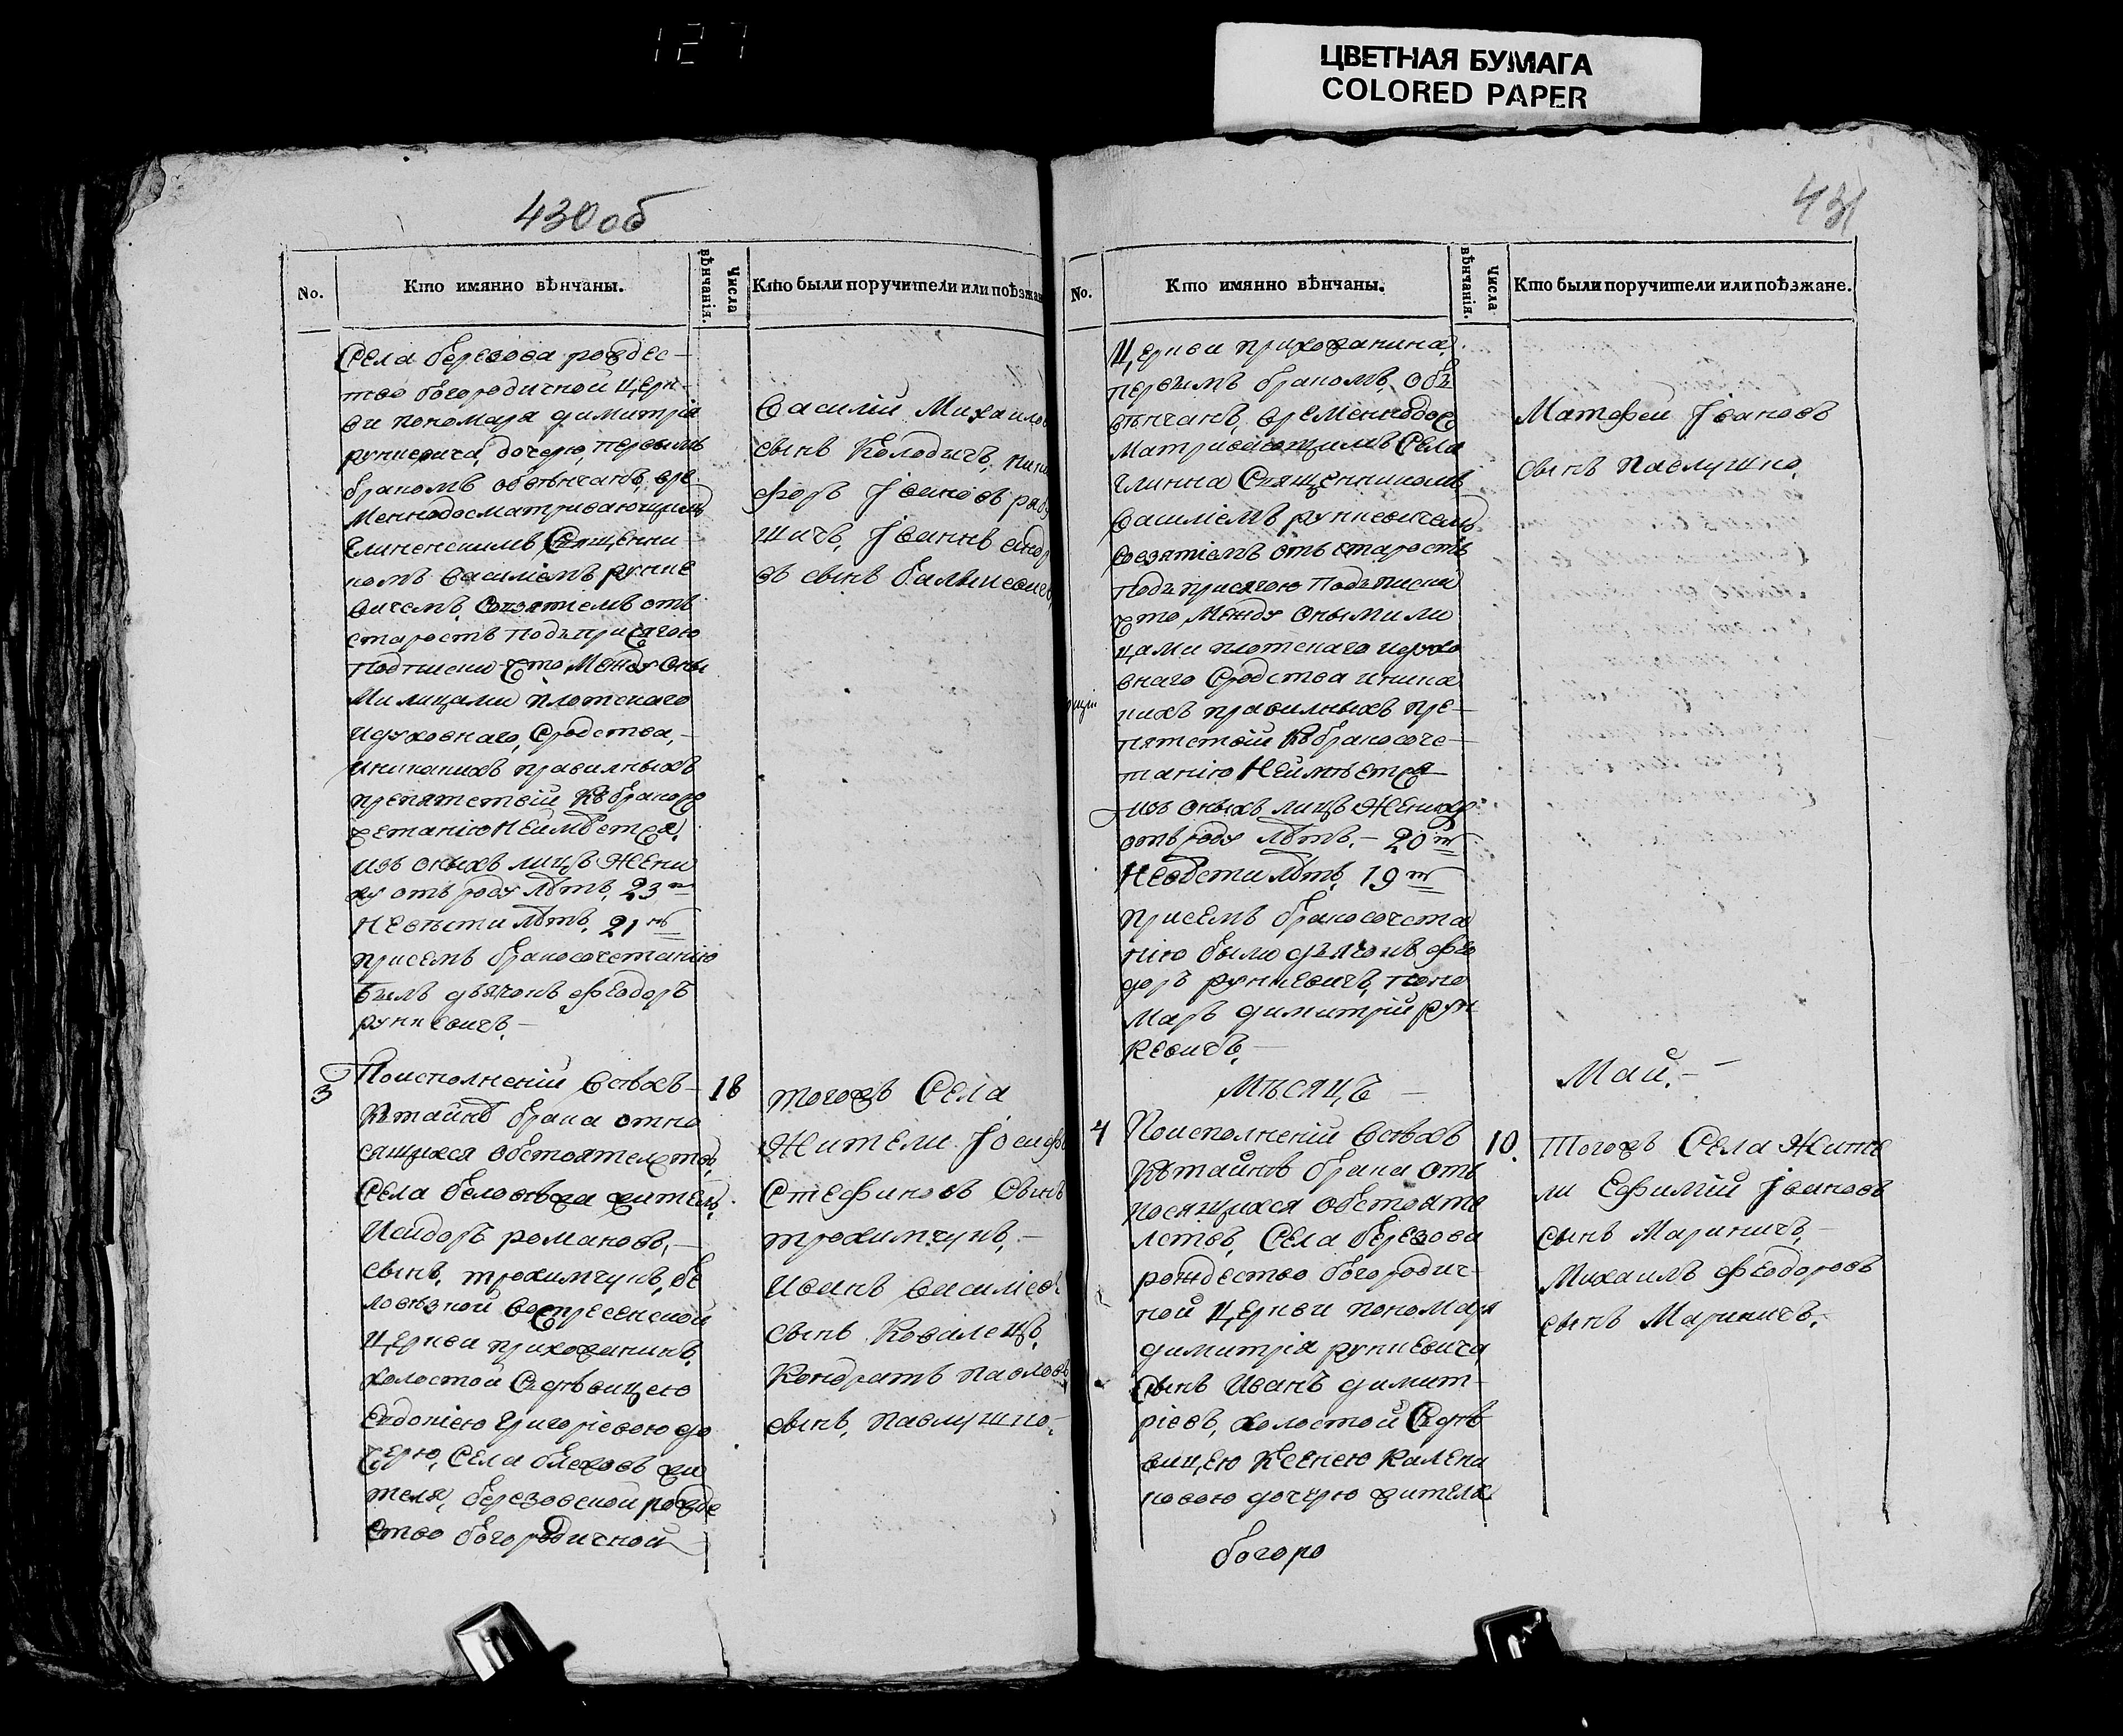 127
ЦВЕТНАЯ БУМАГА
COLORED PAPER
430 об
No.
Кто имянно вѣнчаны.
Числа вѣнчанія.
Кто были поручители или поѣзжан
Села березова рождес-
тво богородичной церк-
ви пономаря димитрія
рункевича, дочерю, первымъ
бракомъ обвѣнчанъ, вре
меннодосматривающимъ
Глиненскимъ Священни
комъ василіемъ рунке
вичемъ, Совзятіемъ отъ
старостъ подъприсягою
подписки Что Между Оны
Ми лицами плотскаго
идуховнаго, Сродства,-
иникакихъ правилныхъ
препятствій Къ бракосо
четанію Неимѣется,
изъ оныхъ лицъ Жени
ху отъ роду лѣтъ, 23 ти
Невѣсти лѣтъ, 21 нъ
присемъ бракосочетанію
былъ дьячокъ Феодоръ
рункевичъ,-
Василій Михаилов
сынъ Колодичъ, ники
форъ Іванов
шичъ, Іваннъ
въ сынъ
3
Поисполненіи всѣхъ-
Ктайнѣ брака отно
сящихся обстоятелствъ,
Села беловѣжа жителъ,
Исидоръ романовъ,-
сынъ, трохимчукъ, бе
ловѣзкой воскресенской
Церкви прихожанинъ,
холостой Сдѣвицею
Евдокіею григоріевою до
Черю, Села блежовъ жи
теля, березовской рожде
ство богородичной
18
тогожъ Села
Жители Іосифъ
Стефановъ Сынъ
трохимчукъ,-
Иванъ василіевъ
сынъ Ковалецъ,
Кондратъ павловъ
сынъ, павлушко,-
431
No.
Кто имянно вѣнчаны.
Числа вѣнчанія.
Кто были поручители или поѣзжане.
Церкви прихожанина,
первымъ бракомъ, объ
вѣнчанъ, временнодос
матривающимъ Села
глинна Священникомъ
василіемъ рункевичемъ
Совзятіемъ отъ старостъ
подъприсягою подъписки
Что Между Оными ли
цами плотскаго идухо
внаго Сродства иника
кихъ правилныхъ пре-
пятствій Къ бракосоче-
танію Неимѣется
изъ оныхъ лицъ Женихо
отъ роду лѣтъ,- 20 ти
Невѣсти лѣтъ, 19 ти
присемъ бракосочета
нію были дьячокъ фео
доръ рункевичъ, поно
Маръ димитрій рун
кевичъ,-
Матфей Івановъ
сынъ павлушко,
Мѣсяцъ-
Май.-
4
Поисполненіи всѣхъ
Ктайнѣ брака отъ
носящихся обстояте
лствъ, Села березова
рождество богородич-
ной Церкви пономаря
димитрія рункевича,
Сынъ Иванъ димит-
ріевъ, холостой Сдѣ
вицею Ксенею Калени
ковою дочерю жителя
богоро
10.
тогожъ Села Жите
ли Ефимій Івановъ
сынъ Мариничъ,-
Михаилъ феодоровъ
сынъ Мариничъ,-